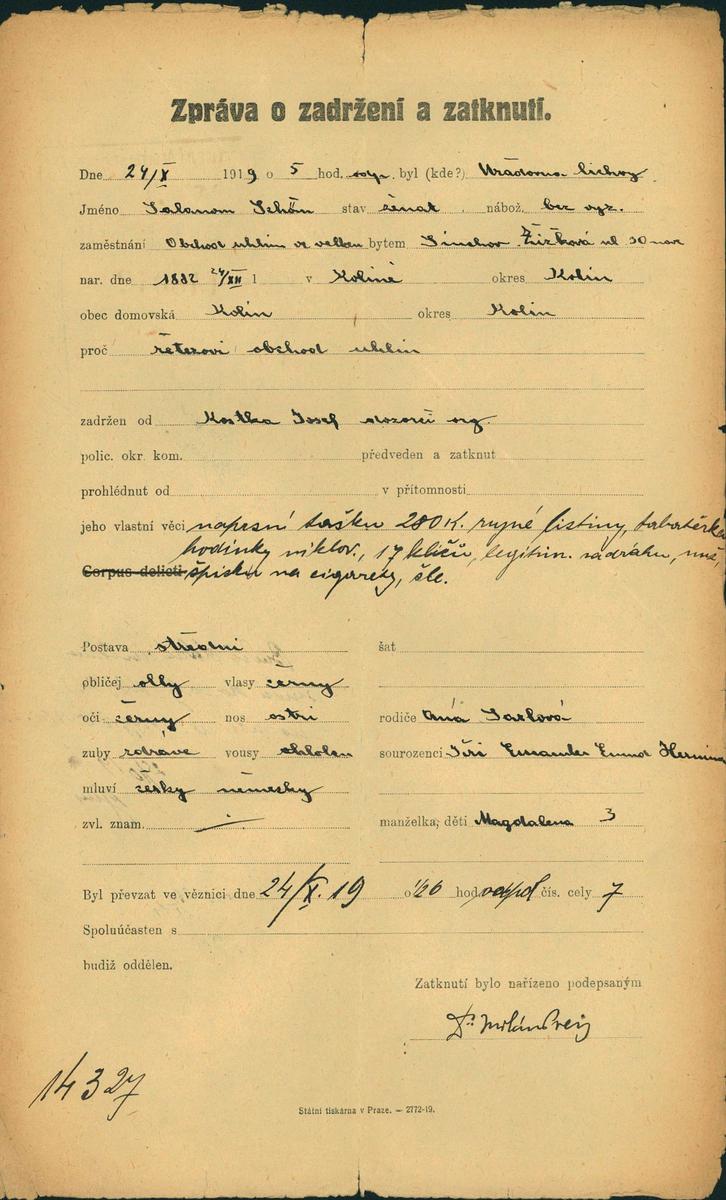 Zpráva o zadržení a zatknutí.
Dne 24/X 1919 o 5 hod. odp. byl (kde?) Úřadovna lichvy
Jméno Salamon Schön stav ženat nábož. bez vyz.
zaměstnání Obchod uhlím ve velkém bytem Smíchov Žižková ul 30
nar. dne 1882 24/XII 1 v Kolíně okres Kolín
obec domovská Kolín okres Kolín
proč řetězoví obchod uhlím
zadržen od Kostka Josef dozorčí org.
polic. okr. kom. předveden a zatknut
prohlédnut od v přítomnosti
jeho vlastní věci naprsní tašku 280 K. různé listiny, tabatěrku
hodinky niklov., 17 klíčů, legitim. nádražn, nůž,
Corpus delicti špičku na cigarety, šle.
Postava střední šat
obličej vlasy černý
oči černý nos ostrí rodiče Ana Karlová
zuby zdravé vousy oholen sourozenci Jiří Emanuel Hermina
mluví česky německy
zvl. znam. manželka, děti Magdalena 3
Byl převzat ve věznici dne 24/X. 19 o 1/26 hod odpol čís. cely 7
Spoluúčasten s
budiž oddělen.
Zatknutí bylo nařízeno podepsaným
Dr. Milán
14327
Státní tiskárna v Praze. — 2772-19.